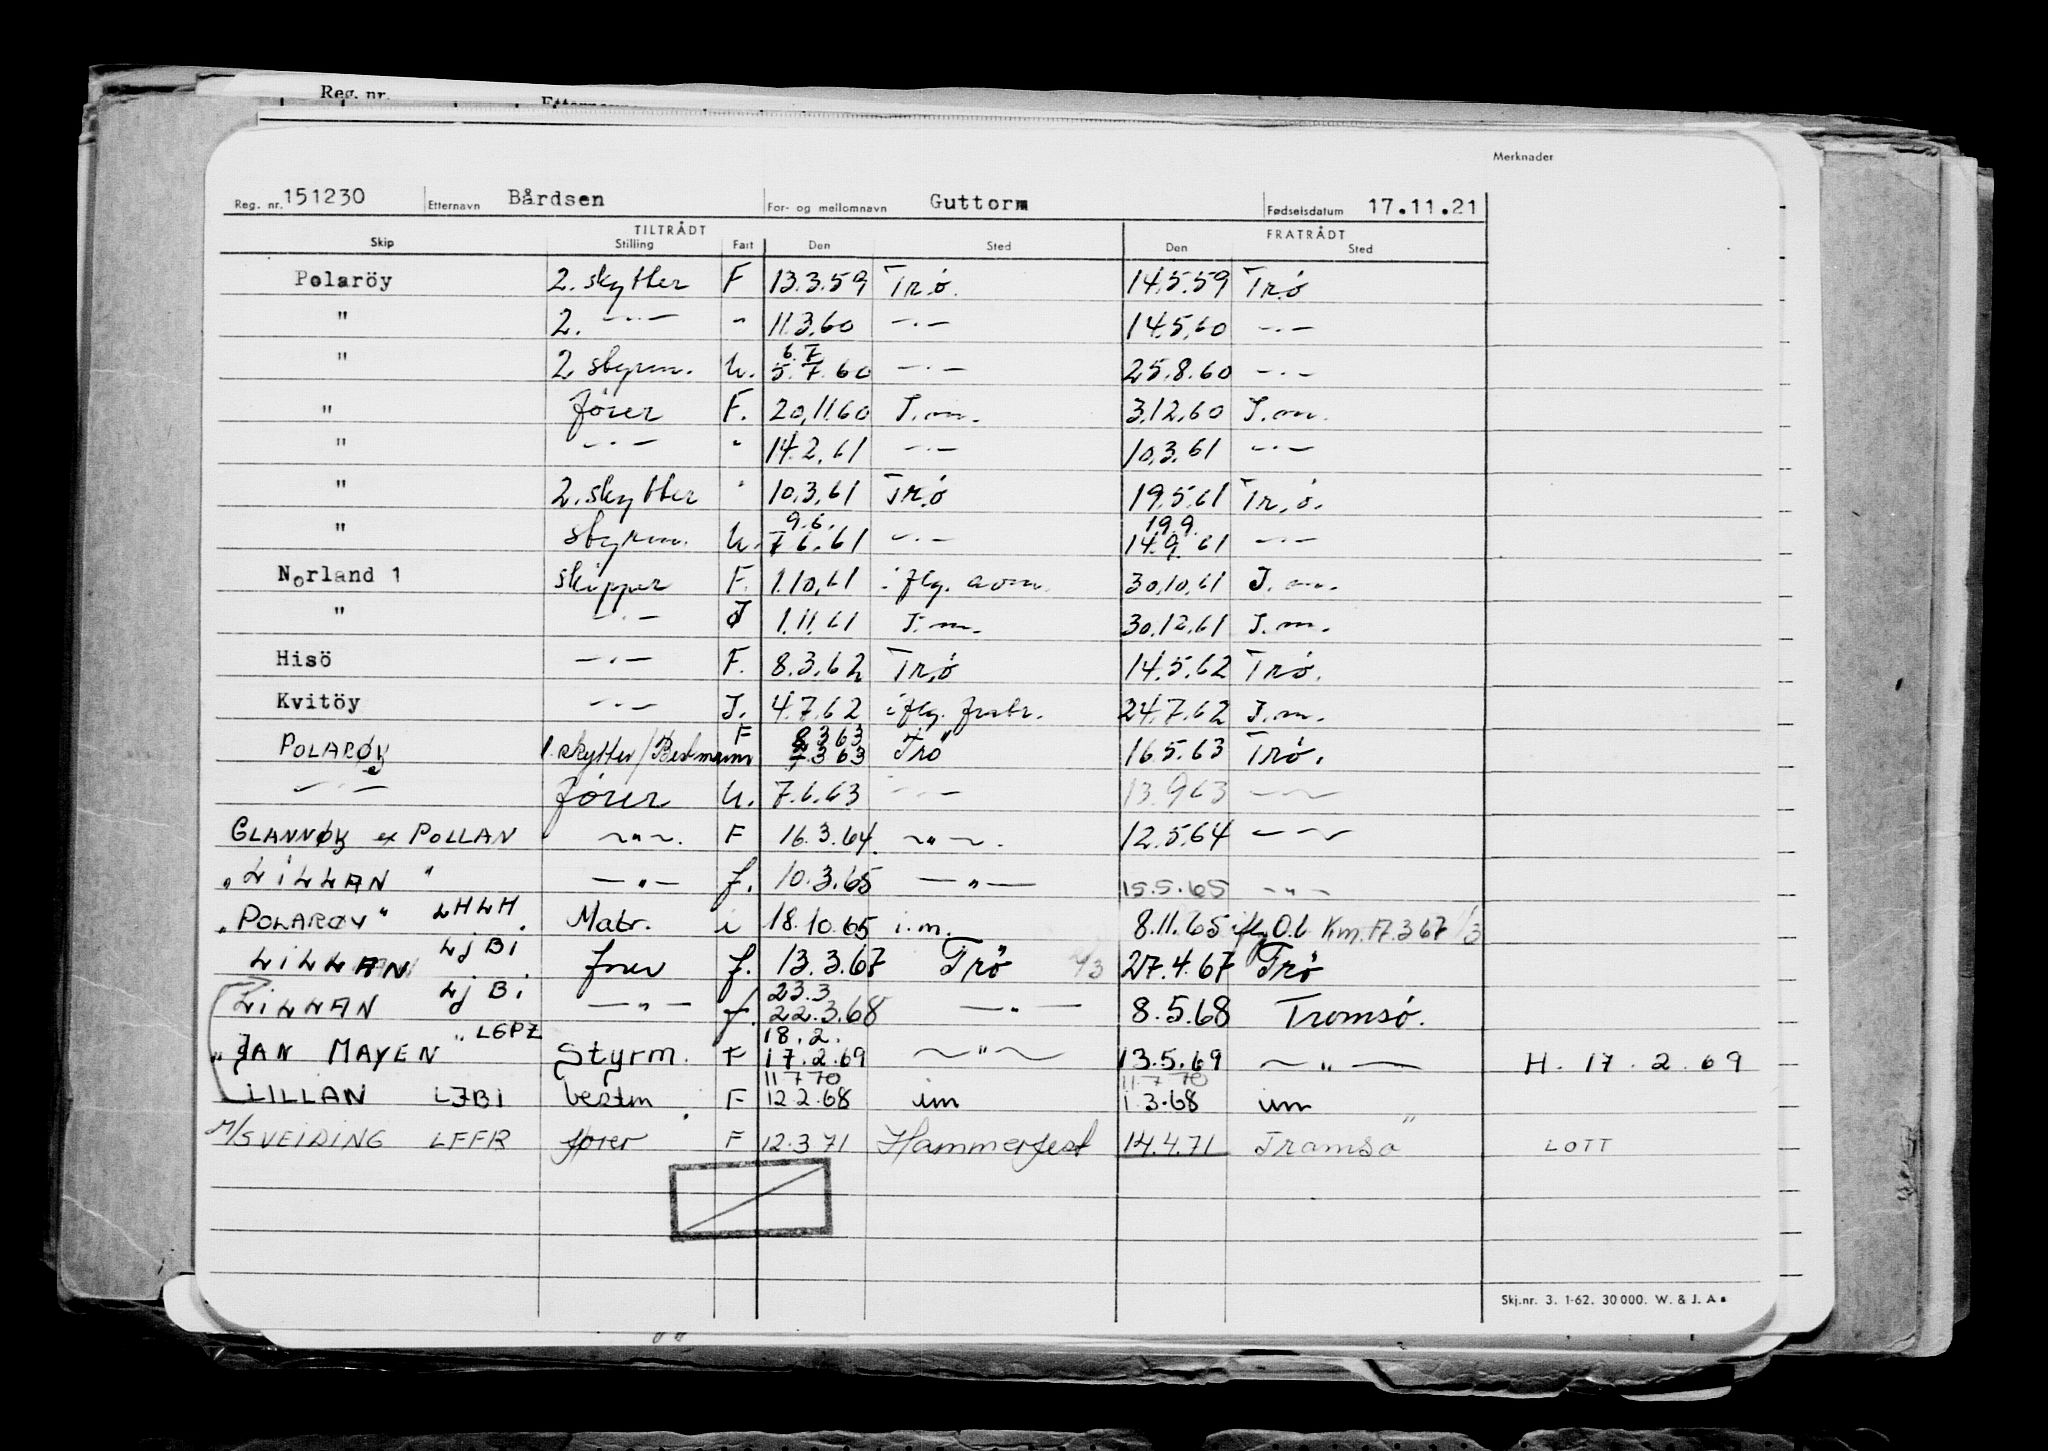 Reg. nr.
Merknader
Reg. nr. 151230 Etternavn Bårdsen For- og mellomnavn Guttorm Fødselsdatum 17.11.21
TILTRÅDT FRATRÅDT
Skip Stilling Fart Den Sted Den Sted
Polaröy 2. skytter F 13.3.59 Tr.ø. 14.5.59 Tr.ø
" 2. —·— " 11.3.60 —·— 14.5.60 —·—
6.7
" 2 styrm. U. 5.7.60 —·— 25.8.60 —·—
" fører F. 20.11.60 I.m. 3.12.60 I.m.
" —·— " 14.2.61 —·— 10.3.61 —·—
" 2. skytter " 10.3.61 Tr.ø 19.5.61 Tr.ø.
9.6. 19.9.
" styrm. U. 7.6.61 —·— 14.9.61 —·—
Norland 1 skipper F. 1.10.61 iflg. 30.10.61 I.m.
" —·— I 1.11.61 I.m. 30.12.61 I.m.
Hisö —·— F. 8.3.62 Tr.ø 14.5.62 Trø.
Kvitöy —·— I. 4.7.62 iflg. 24.7.62 I.m.
8 3 63
POLARØY 1. skytter/Bestmann F 7.3 63 Trö 16.5.63 Trø.
—·— fører U. 7.6.63 —·— 13.9 63 —·—
GLANNØY ex POLLAN —"—. F 16.3.64. —"—. 12.5.64 —·—
"LILLAN" —"— f. 10.3.65 —"— 15.5.65 —"—
"POLARØY" LHLH. Matr. i 18.10.65 i.m. 8.11.65 iflg O.b Km. 17.3 67 1/3
LILLAN LJBI fører f. 13.3.67 Trö 27.4.67 Trö
23.3
LILLAN LJBI —"— f. 22.3.68 —"— 8.5.68 Tromsø.
18.2.
"JAN MAYEN" LGPZ Styrm. F 17.2.69 —"— 13.5.69 —"— H. 17.2.69
11 7 70 11.7 70
LILLAN LJBI bestm. F 12 2.68 im 1.3.68 im
M/S VEIDING LFFR fører F 12.3 71 Hammerfest 14.4.71 Tromsö LOTT
Skj.nr. 3. 1-62. 30 000. W. & J. A s